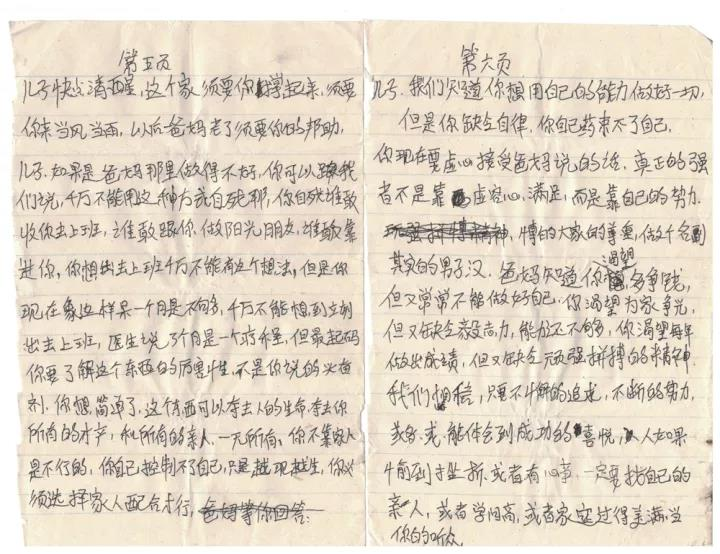 第五页
儿子快点清醒,这个家须要你撑起来,须要
你来当风当雨,以后爸妈老了须要你的帮助,
儿子.如果是爸妈那里做得不好,你可以跟我
们说,千万不能用这种方式自残那,你自残谁敢
收你去上班,谁敢跟你做阳光朋友,谁敢靠
进你,你想出去上班千万不能有这个想法,但是你
现在象这样呆一个月是不够,千万不能想到立刻
出去上班,医生说了个月是一个疗程,但最起码
你要了解这个东西的厉害性,不是你说的兴奋
剂,你想简单了,这个东西可以夺去人的生命,夺去你
所有的才产,和所有的亲人,一无所有,你不靠家人
是不行的,你自己控制不了自己,只是越现越生,你必
须选择家人配合才行,爸妈等你回答:
第六页
儿子.我们知道你想用自己的能力做好一切,
但是你缺乏自律,你自己药束不了自己,
你现在要虚心接受爸妈说的话,真正的强
者不是靠虚容心,满足,而是靠自己的努力.
玩强拼博精神,博的大家的尊重,做个名副
其实的男子汉.爸妈知道你渴望多争钱,
但又常常不能做好自己,你渴望为家争光,
但又缺乏毅志力,能力还不够,你渴望每年
做出成绩,但又缺乏顽强拼搏的精神
我们相信,只要不断的追求,不断的努力,
或多或能体会到成功的喜悦,人如果
情到才坐折或者有心事,一定要找自己的
亲人,或者学旧高,或者家室过得美满,当
你的听众